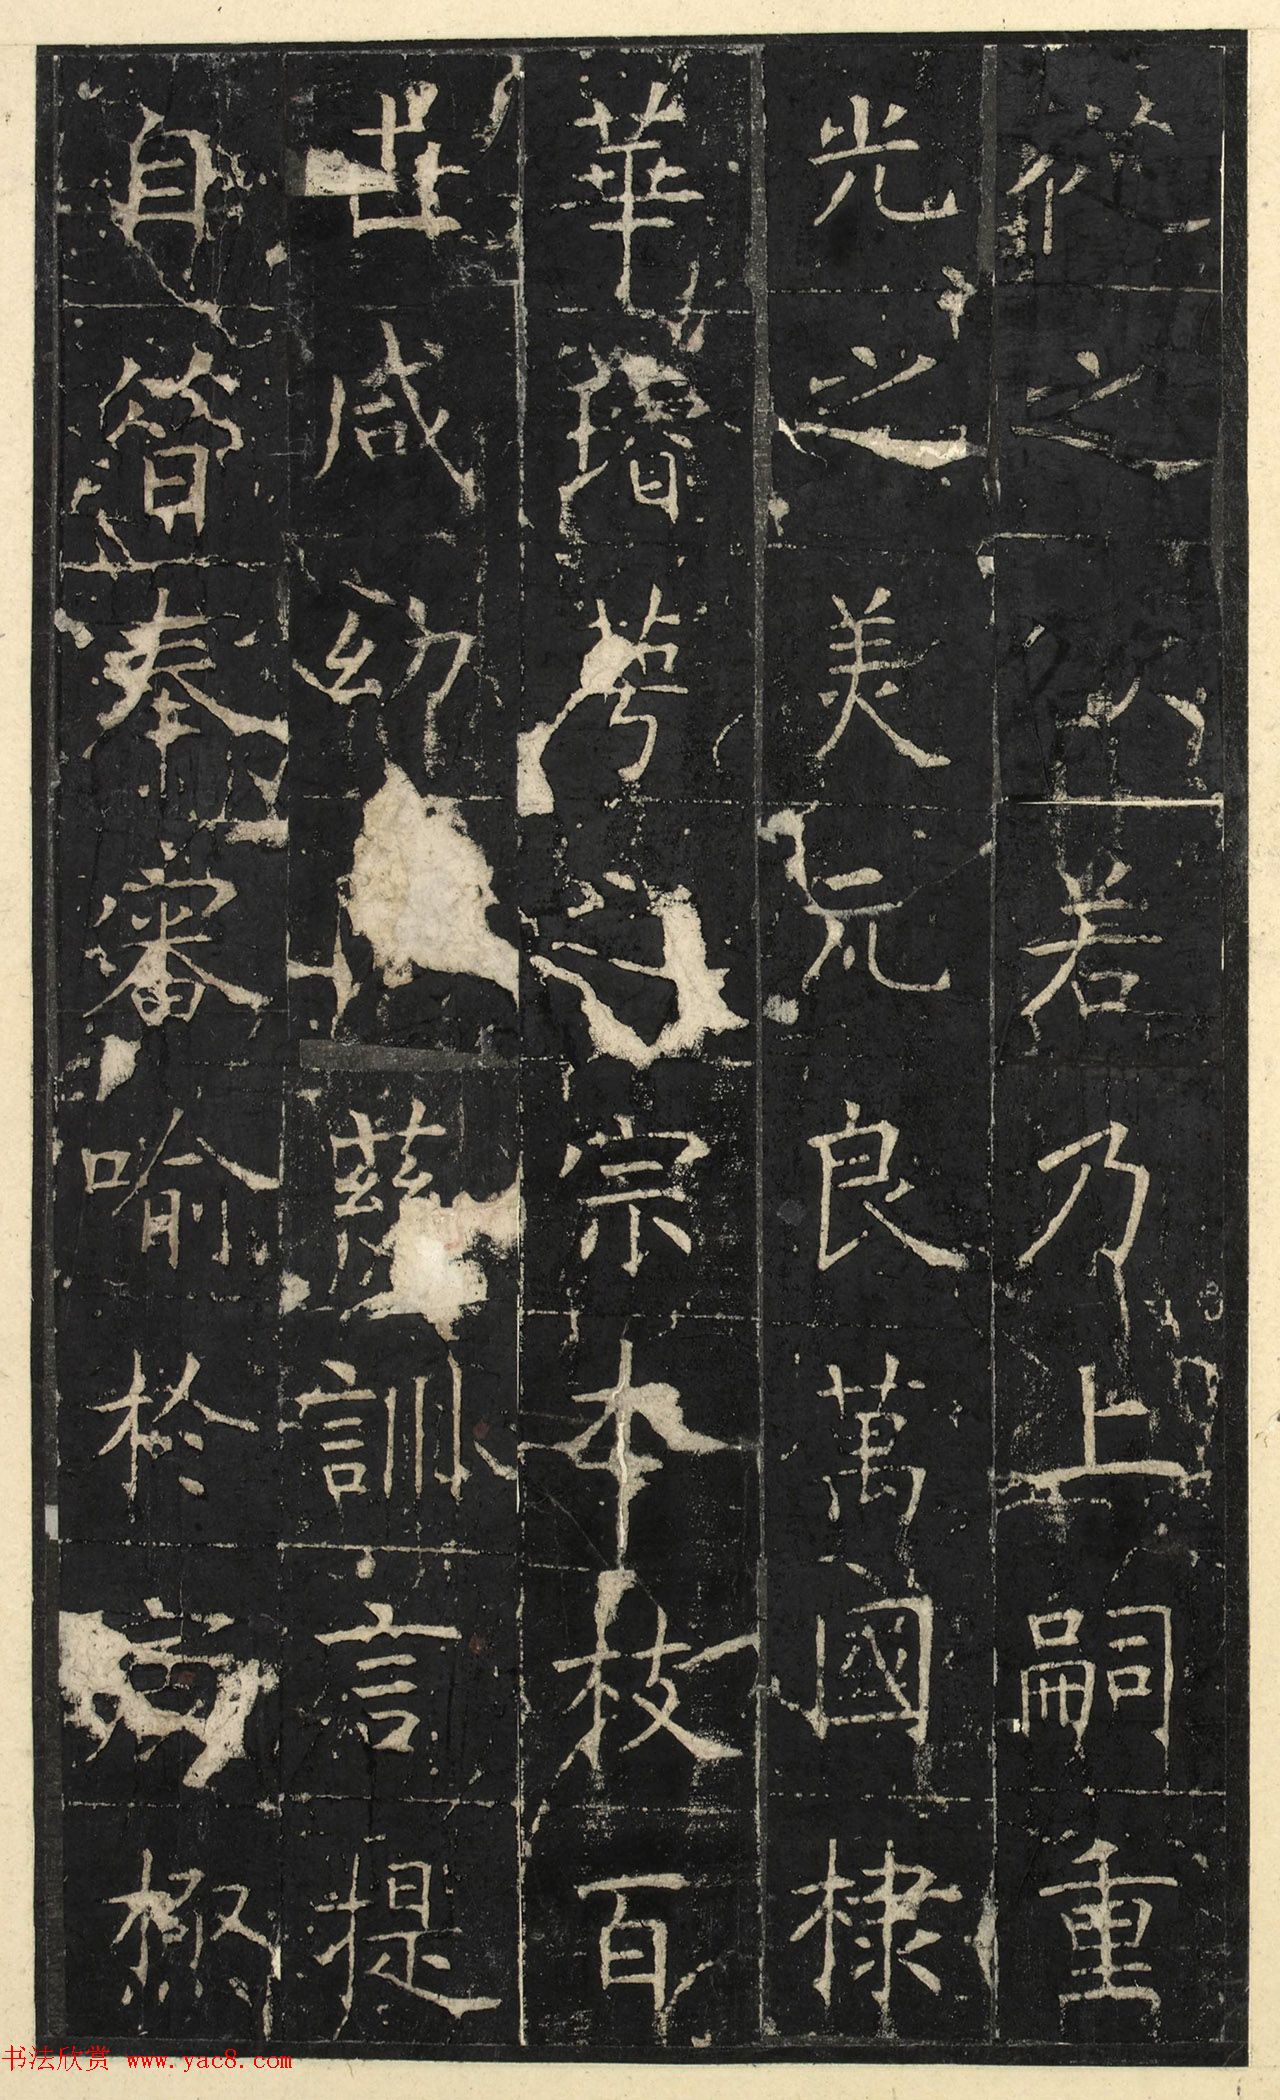 之 若乃上嗣重
光之美元良萬國棣
華增萼之宗本枝百
世咸幼 慈訓言提
自簪奉審喻於言極
书法欣赏 www.yac8.com